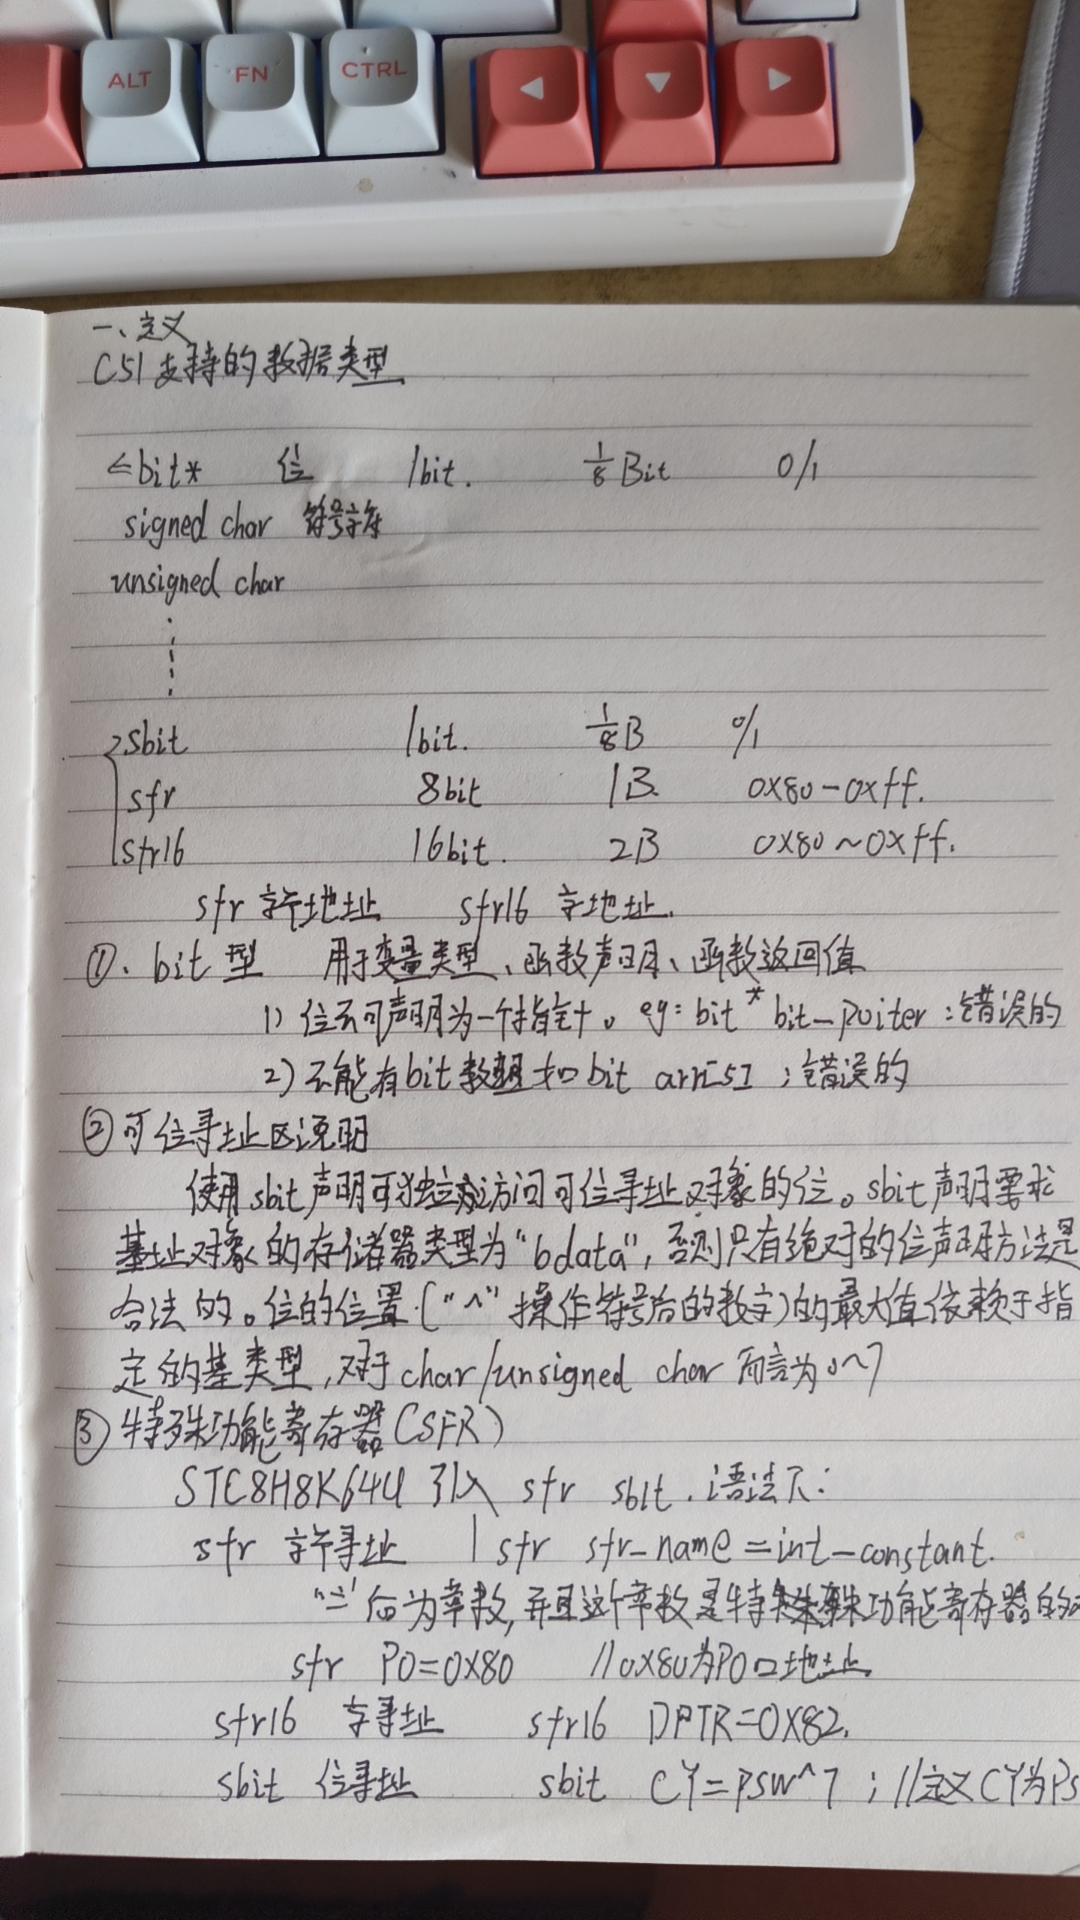 ALT FN CTRL
一、定义
C51支持的数据类型
bit* 位 1bit. 1/8 Bit 0/1
signed char 符号字符
unsigned char
sbit 1bit. 1/8B 0/1
sfr 8bit 1B. 0x80-0xff.
sfr16 16bit. 2B 0x80~0xff.
sfr 字节地址 sfr16 字地址.
①. bit 型 用于变量类型、函数声明、函数返回值
1) 位不可声明为一个指针。eg: bit * bit-poiter ;错误的
2) 不能有bit数组 如 bit arr[5] ;错误的
②可位寻址区说明
使用sbit声明可独立访问可位寻址对象的位。sbit声明需求
基址对象的存储器类型为"bdata",否则只有绝对的位声明方法是
合法的。位的位置("^"操作符号后的数字)的最大值依赖于指
定的基类型,对于char/unsigned char 而言为0~7
③特殊功能寄存器(SFR)
STC8H8K64U 引入 sfr sbit. 语法下:
sfr 字节寻址 | sfr sfr-name = int-constant.
"="后为常数,并且这个常数是特殊功能寄存器的
sfr P0=0x80 //0x80为P0口地址
sfr16 字寻址 sfr16 DPTR=0x82.
sbit 位寻址 sbit CY=PSW^7 ; //定义CY为PS